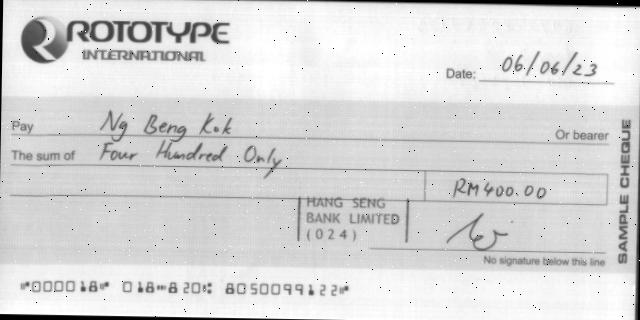 ROTOTYPE
INTERNATIONAL
Date: 06/06/23
Pay Ng Beng Kok Or bearer
The sum of Four Hundred Only
RM400.00
HANG SENG
BANK LIMITED
(024)
No signature below this line
SAMPLE CHEQUE
⑈000018⑈ 018⑉820⑆ 8050099122⑈